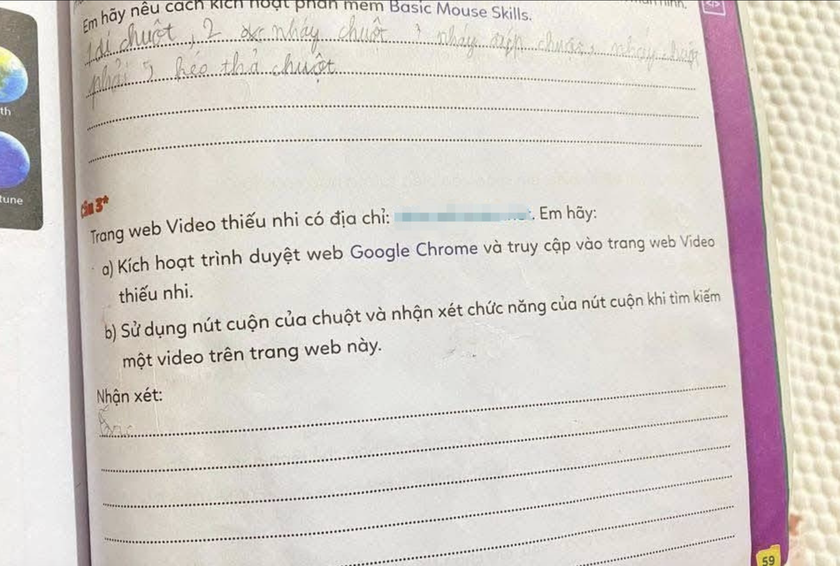 th
tune
Em hãy nêu cách kích hoạt phần mềm Basic Mouse Skills.
1 di chuột, 2 nháy chuột 3 nháy đúp chuột, nháy chuột
phải 5 kéo thả chuột
Câu 3*
Trang web Video thiếu nhi có địa chỉ: . Em hãy:
a) Kích hoạt trình duyệt web Google Chrome và truy cập vào trang web Video
thiếu nhi.
b) Sử dụng nút cuộn của chuột và nhận xét chức năng của nút cuộn khi tìm kiếm
một video trên trang web này.
Nhận xét:
59